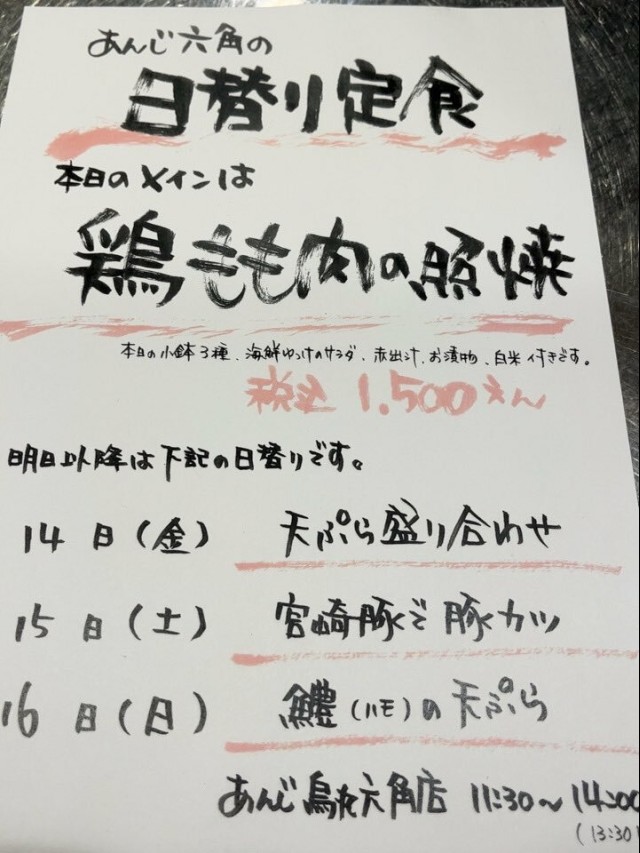 あんじ六角の
日替り定食
本日のメインは
鶏もも肉の照焼
本日の小鉢3種、海鮮ゆっけのサラダ、赤出汁、お漬物、白米付きです。
税込 1.500えん
明日以降は下記の日替りです。
14日(金) 天ぷら盛り合わせ
15日(土) 宮崎豚で豚カツ
16日(日) 鱧(ハモ)の天ぷら
あんじ烏丸六角店 11:30〜14:00
(13:30